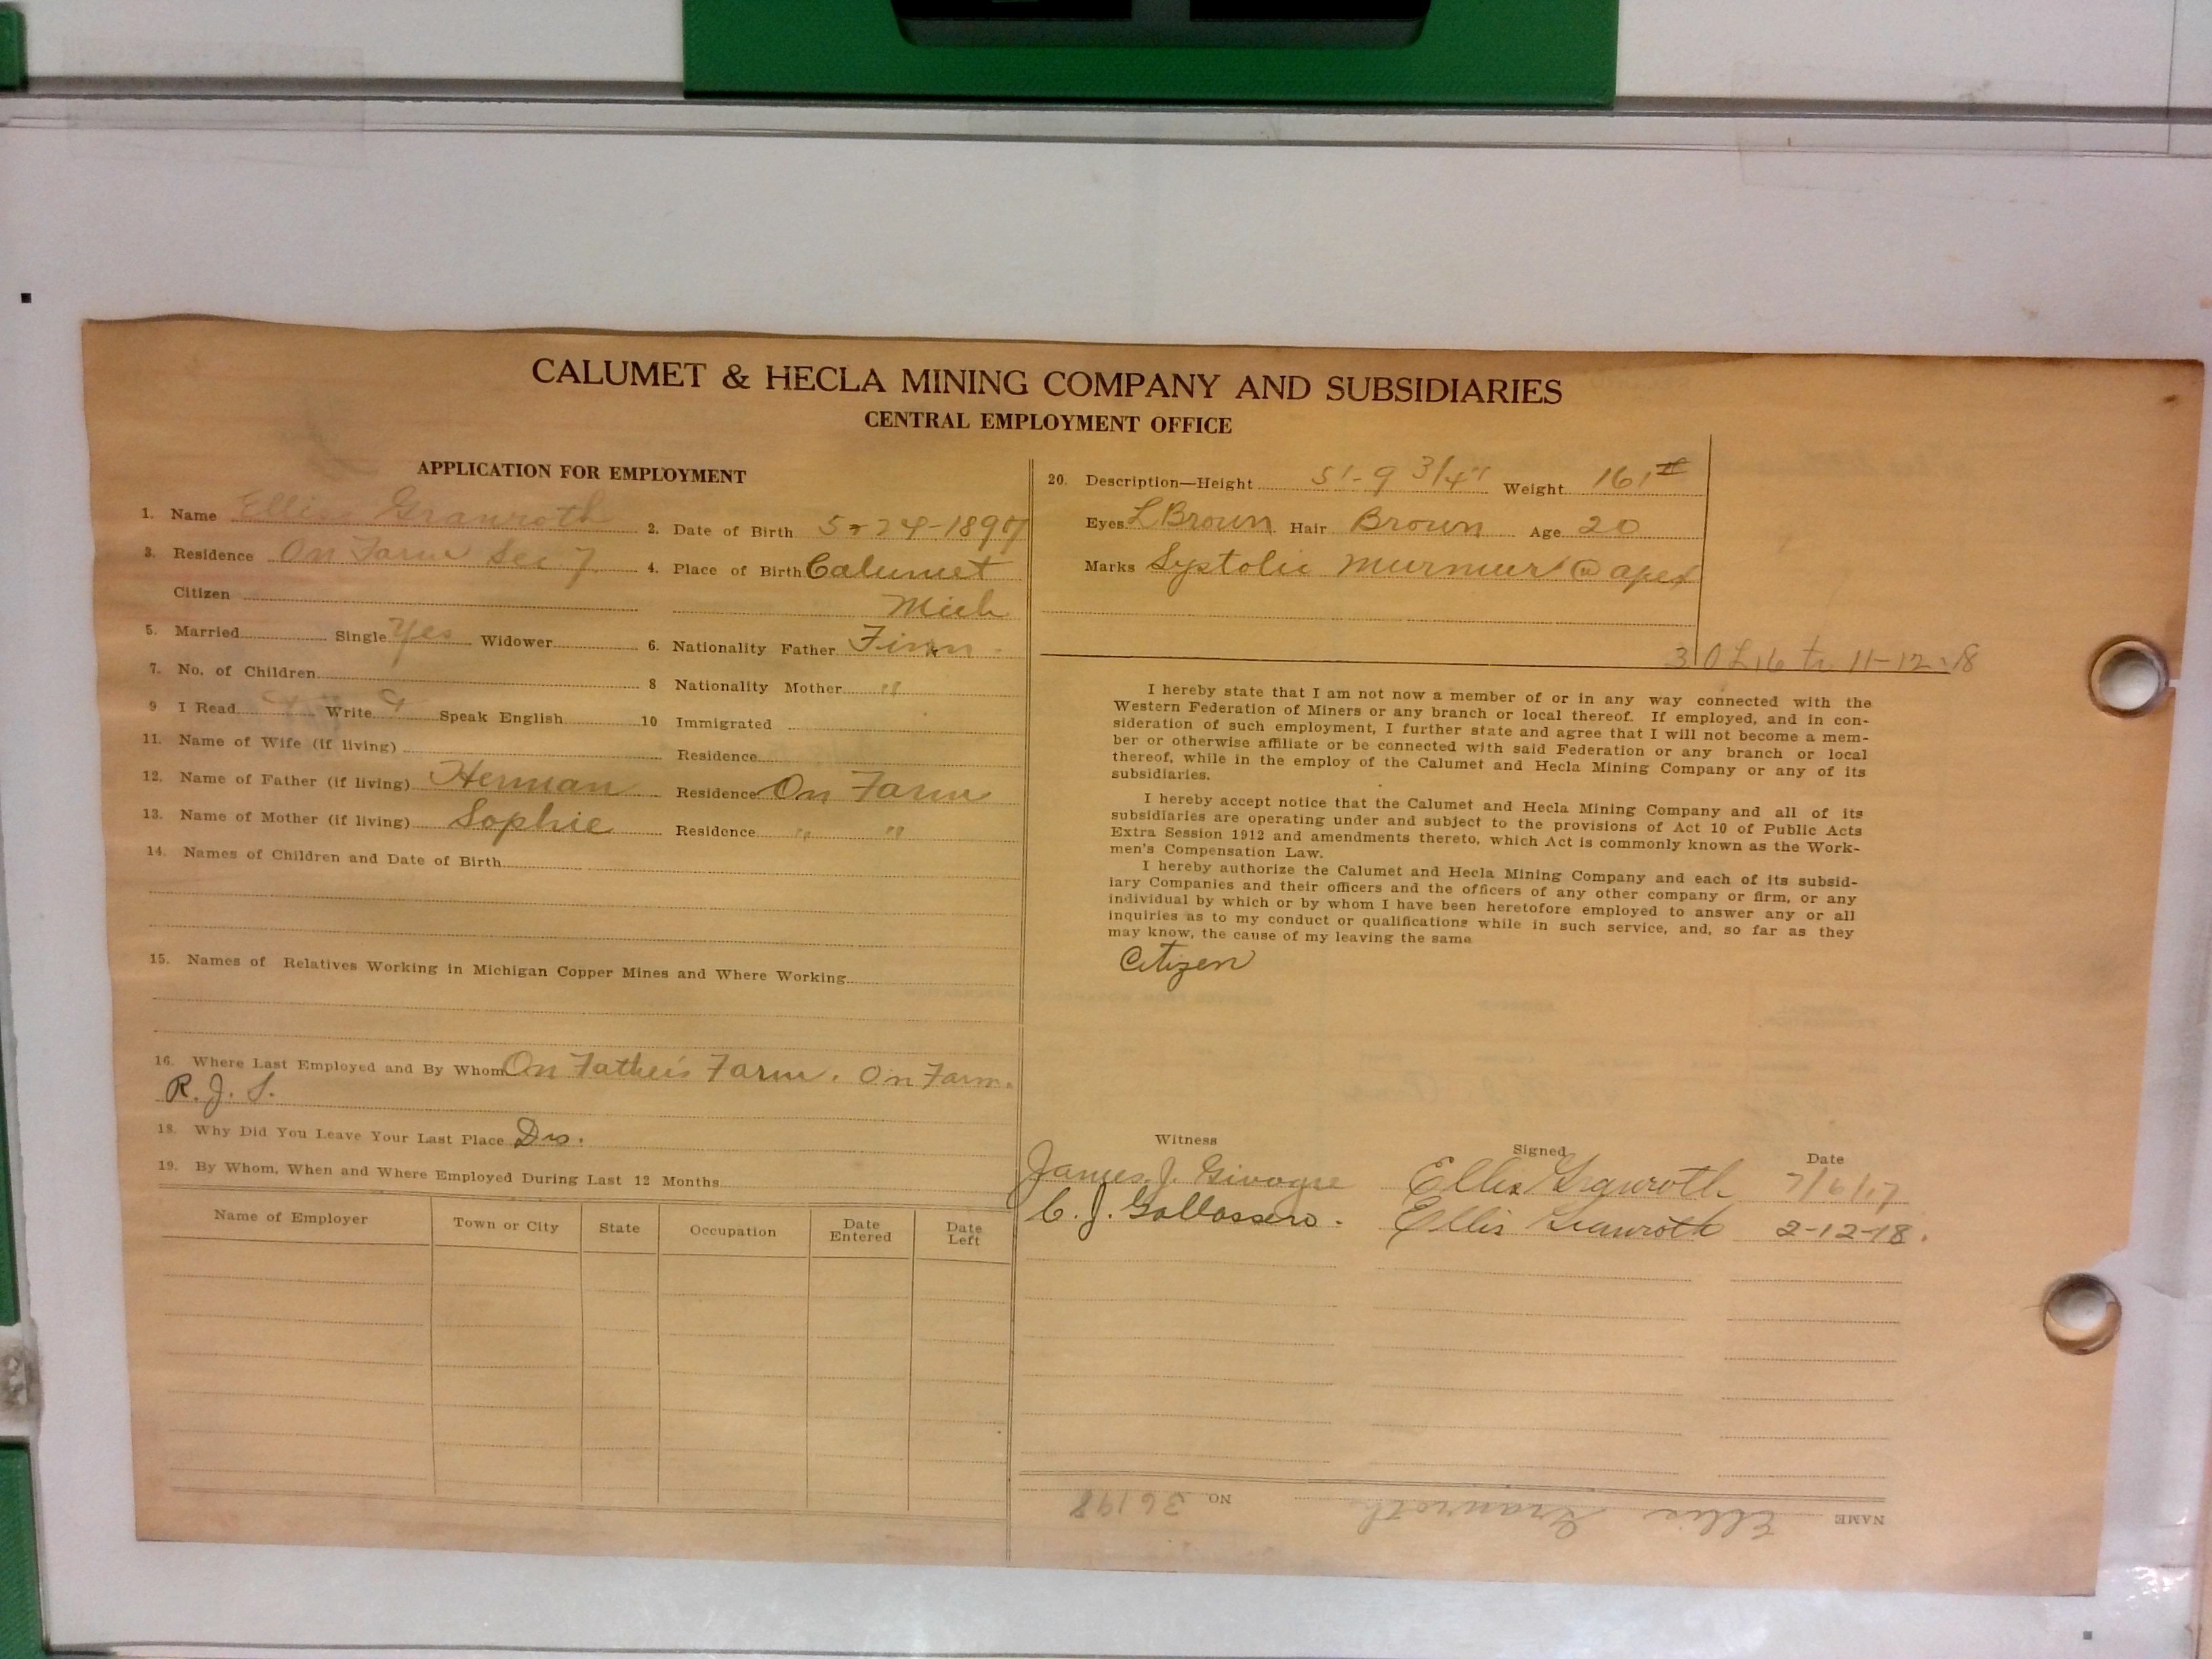 CALUMET & HECLA MINING COMPANY AND SUBSIDIARIES
CENTRAL EMPLOYMENT OFFICE
APPLICATION FOR EMPLOYMENT
1. Name Ellis Granroth 2. Date of Birth 5-24-1897
3. Residence On Farm Sec 7 4. Place of Birth Calumet
Citizen Mich
5. Married Single Yes Widower 6. Nationality Father Finn
7. No. of Children 8 Nationality Mother " "
9 I Read Write Speak English 10 Immigrated
11. Name of Wife (if living) Residence
12. Name of Father (if living) Herman Residence On Farm
13. Name of Mother (if living) Sophie Residence " "
14. Names of Children and Date of Birth
15. Names of Relatives Working in Michigan Copper Mines and Where Working
16. Where Last Employed and By Whom On Father's Farm. On Farm.
R. J. S.
18. Why Did You Leave Your Last Place
19. By Whom, When and Where Employed During Last 12 Months
Name of Employer Town or City State Occupation Date Entered Date Left
20. Description—Height 5'-9 3/4" Weight 161#
Eyes L Brown Hair Brown Age 20
Marks Systolic Murmur @ apex
11-12-18
I hereby state that I am not now a member of or in any way connected with the
Western Federation of Miners or any branch or local thereof. If employed, and in con-
sideration of such employment, I further state and agree that I will not become a mem-
ber or otherwise affiliate or be connected with said Federation or any branch or local
thereof, while in the employ of the Calumet and Hecla Mining Company or any of its
subsidiaries.
I hereby accept notice that the Calumet and Hecla Mining Company and all of its
subsidiaries are operating under and subject to the provisions of Act 10 of Public Acts
Extra Session 1912 and amendments thereto, which Act is commonly known as the Work-
men's Compensation Law.
I hereby authorize the Calumet and Hecla Mining Company and each of its subsid-
iary Companies and their officers and the officers of any other company or firm, or any
individual by which or by whom I have been heretofore employed to answer any or all
inquiries as to my conduct or qualifications while in such service, and, so far as they
may know, the cause of my leaving the same
Citizen
Witness Signed Date
James J. Ellis Granroth 7/6/17
C. J. Ellis Granroth 2-12-18.
NAME Ellis Granroth NO. 36198